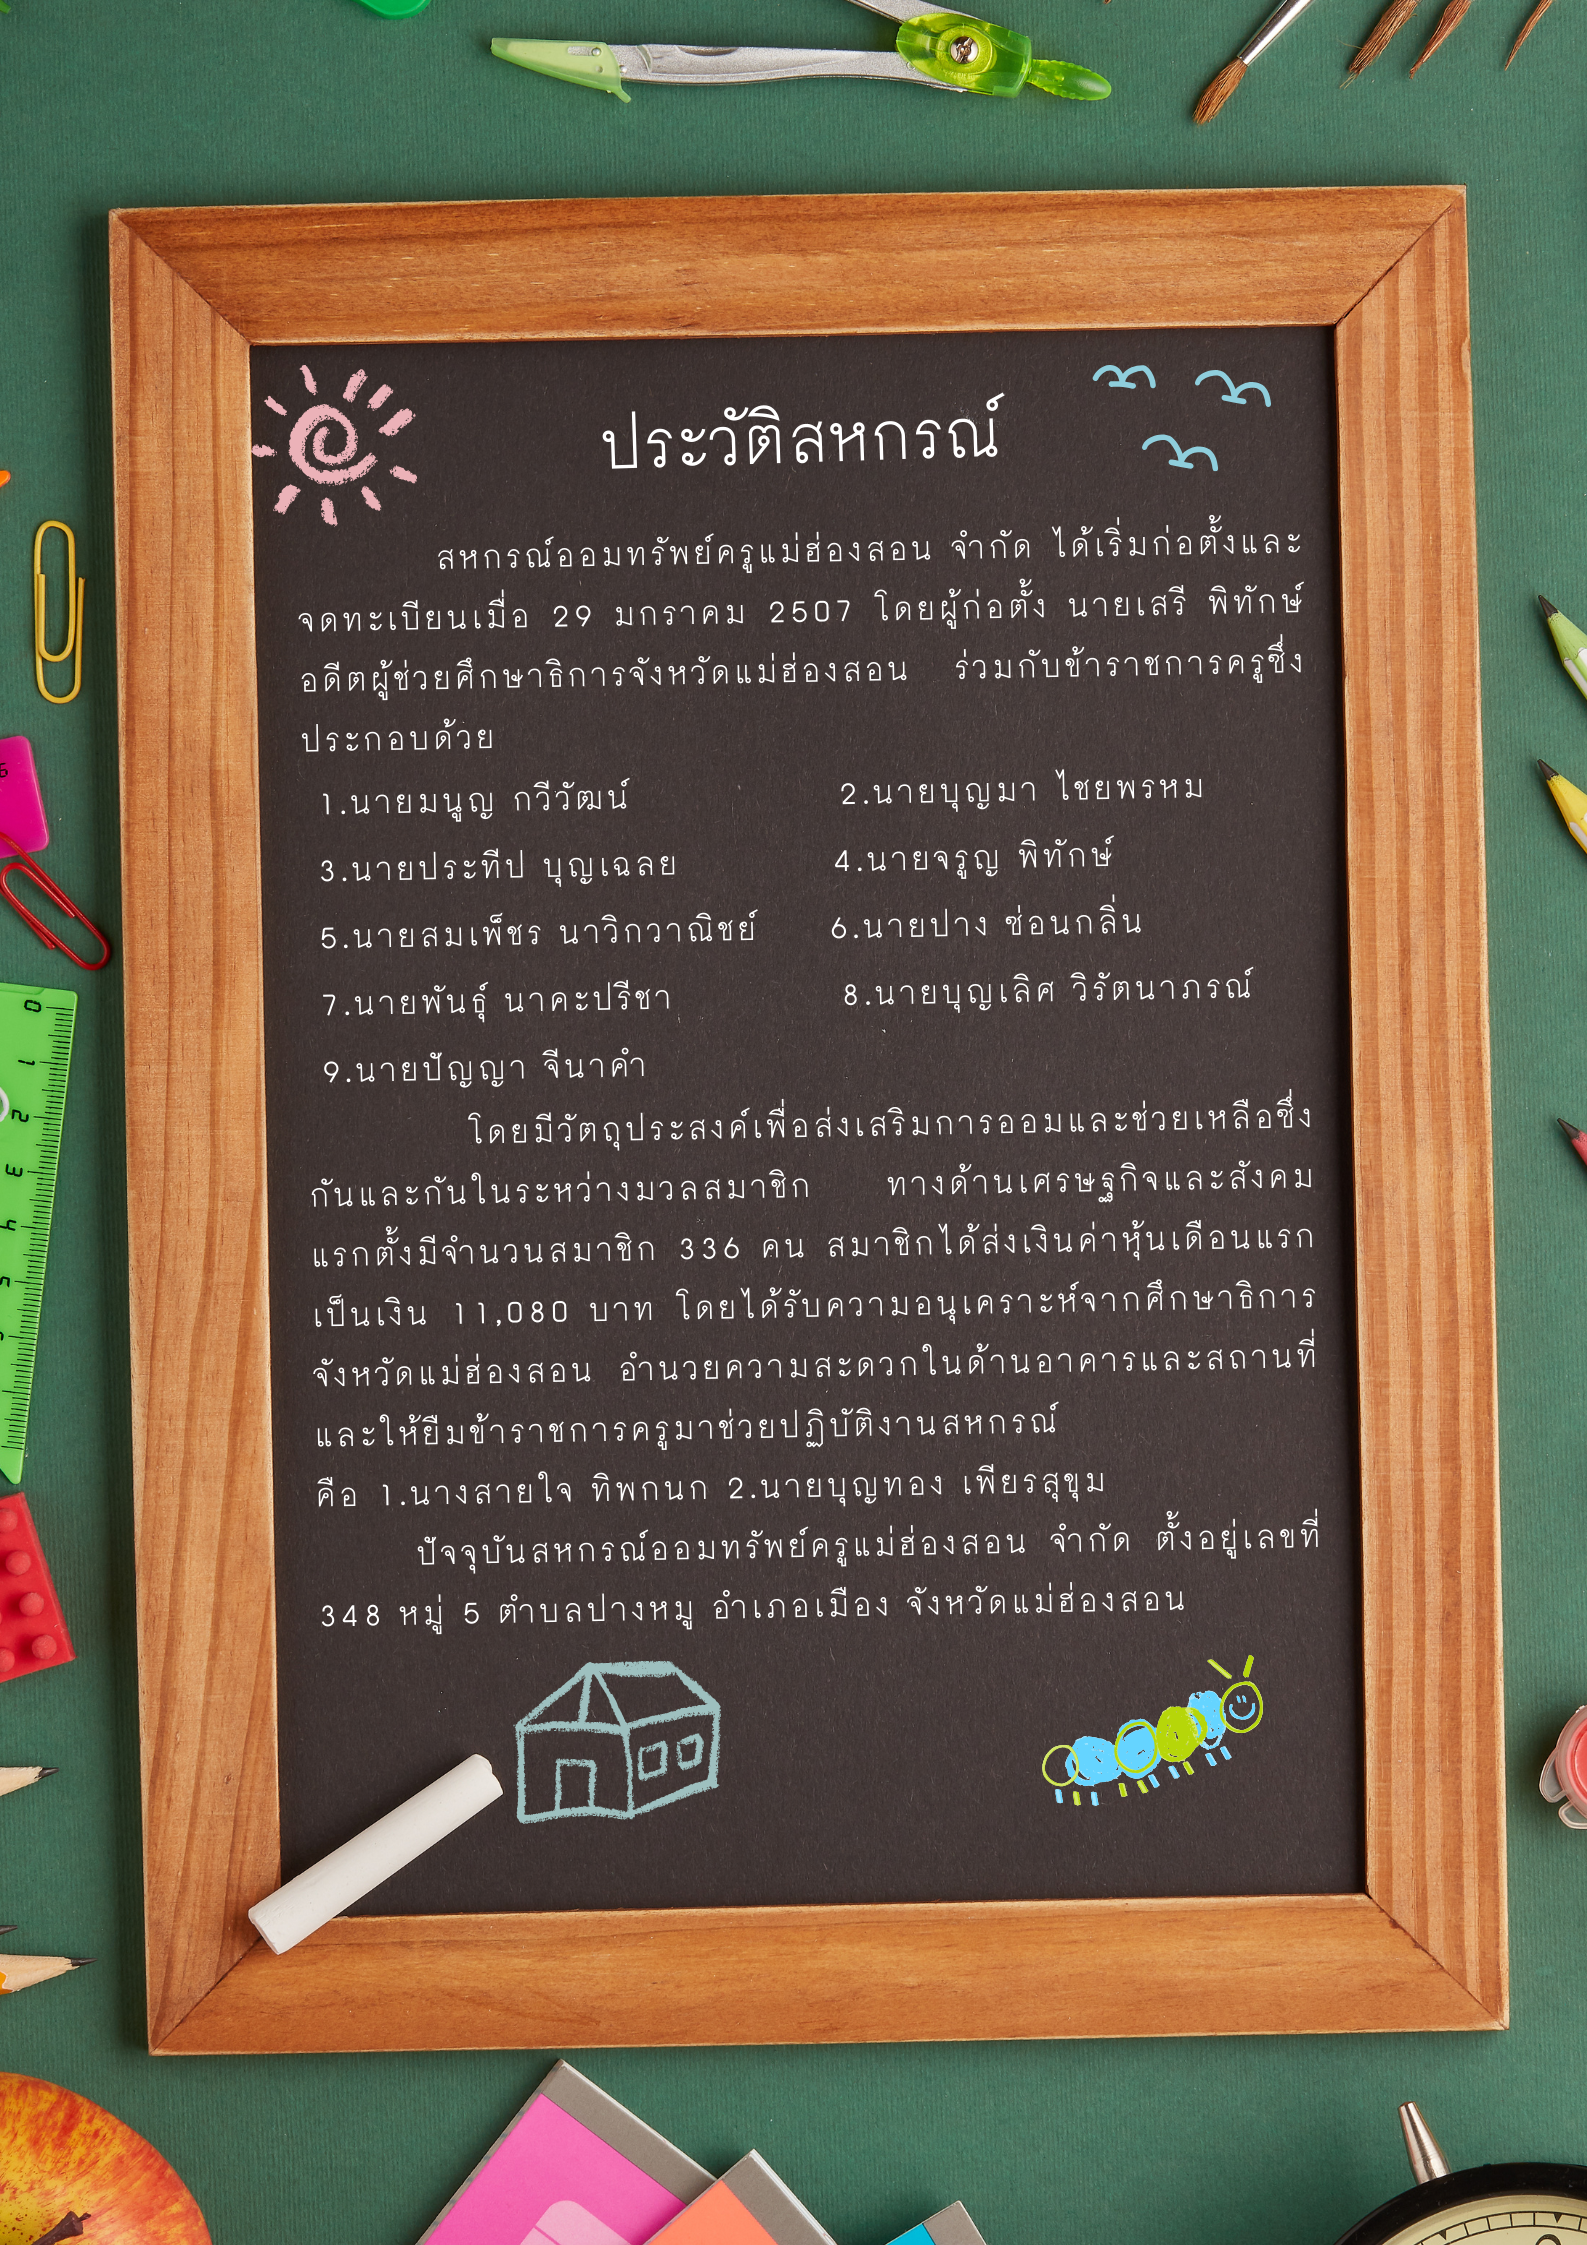 ประวัติสหกรณ์
สหกรณ์ออมทรัพย์ครูแม่ฮ่องสอน จำกัด ได้เริ่มก่อตั้งและ
จดทะเบียนเมื่อ 29 มกราคม 2507 โดยผู้ก่อตั้ง นายเสรี พิทักษ์
อดีตผู้ช่วยศึกษาธิการจังหวัดแม่ฮ่องสอน ร่วมกับข้าราชการครูซึ่ง
ประกอบด้วย
1.นายมนูญ กวีวัฒน์ 2.นายบุญมา ไชยพรหม
3.นายประทีป บุญเฉลย 4.นายจรูญ พิทักษ์
5.นายสมเพ็ชร นาวิกวาณิชย์ 6.นายปาง ซ่อนกลิ่น
7.นายพันธุ์ นาคะปรีชา 8.นายบุญเลิศ วิรัตนาภรณ์
9.นายปัญญา จีนาคำ
โดยมีวัตถุประสงค์เพื่อส่งเสริมการออมและช่วยเหลือซึ่ง
กันและกันในระหว่างมวลสมาชิก ทางด้านเศรษฐกิจและสังคม
แรกตั้งมีจำนวนสมาชิก 336 คน สมาชิกได้ส่งเงินค่าหุ้นเดือนแรก
เป็นเงิน 11,080 บาท โดยได้รับความอนุเคราะห์จากศึกษาธิการ
จังหวัดแม่ฮ่องสอน อำนวยความสะดวกในด้านอาคารและสถานที่
และให้ยืมข้าราชการครูมาช่วยปฏิบัติงานสหกรณ์
คือ 1.นางสายใจ ทิพกนก 2.นายบุญทอง เพียรสุขุม
ปัจจุบันสหกรณ์ออมทรัพย์ครูแม่ฮ่องสอน จำกัด ตั้งอยู่เลขที่
348 หมู่ 5 ตำบลปางหมู อำเภอเมือง จังหวัดแม่ฮ่องสอน
0
1
2
3
4
5